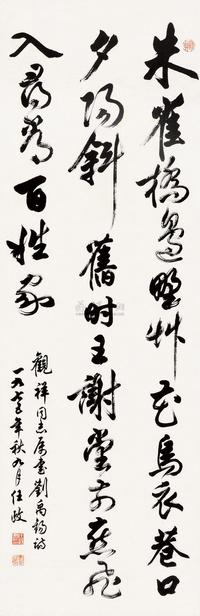 朱雀橋邊野艸花烏衣巷口
夕陽斜舊时王謝堂前燕飛
入尋常百姓家
觀祥同志属書劉禹錫詩
一九七五年秋九月任政